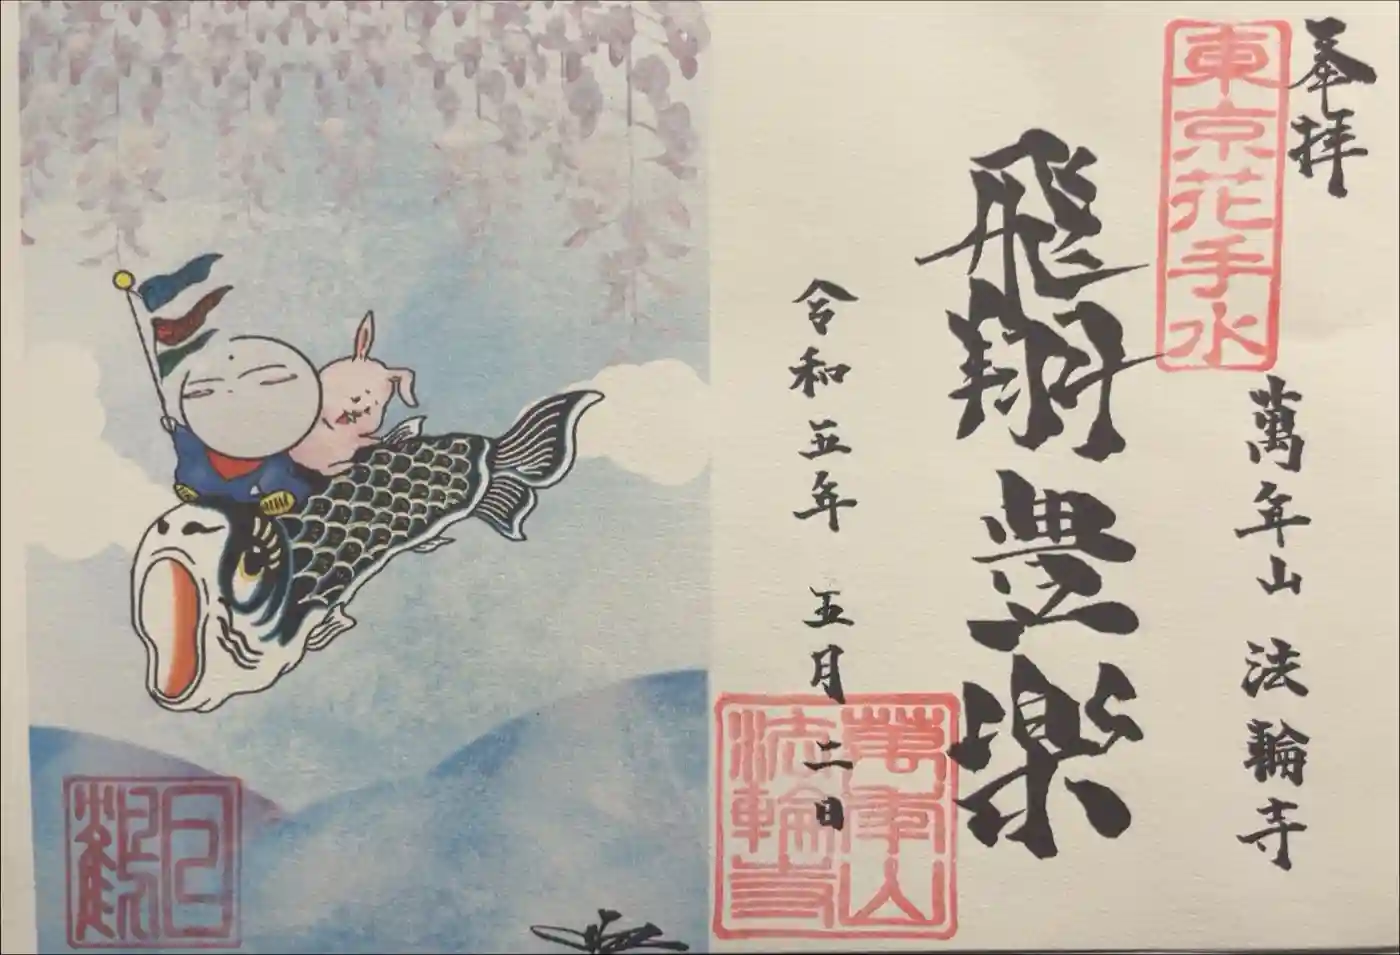 奉拝
東京花手水
萬年山 法輪寺
飛翔豊楽
令和五年 五月 二日
萬年山
法輪寺
日
観